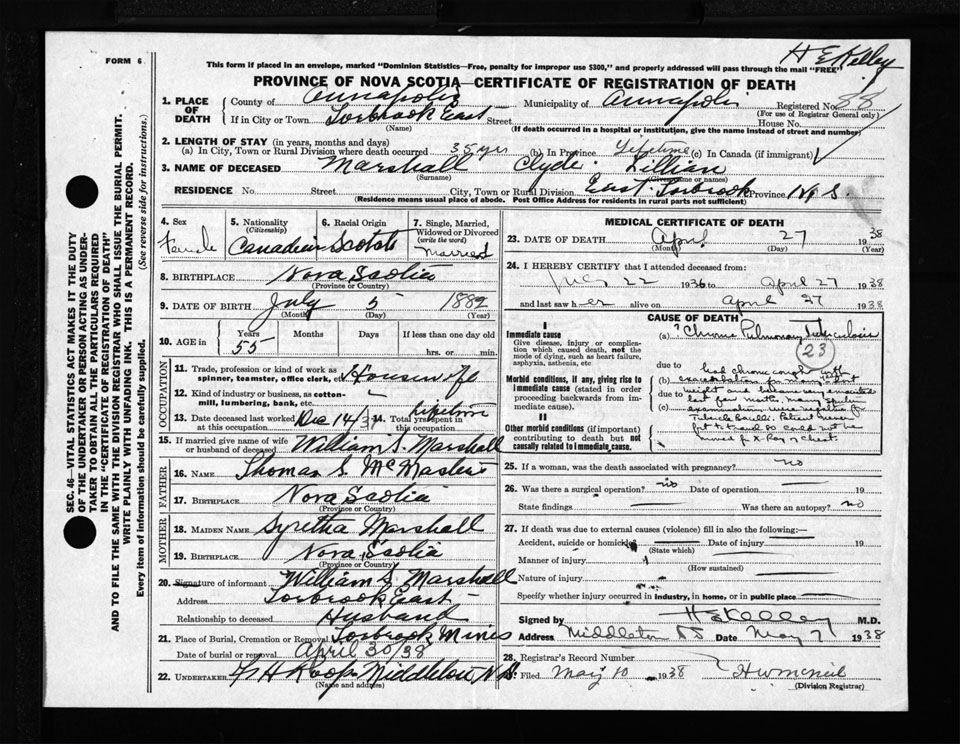 FORM 6
This form if placed in an envelope, marked "Dominion Statistics—Free, penalty for improper use $300," and properly addressed will pass through the mail "FREE"
H E Kelley
PROVINCE OF NOVA SCOTIA—CERTIFICATE OF REGISTRATION OF DEATH
SEC. 46—VITAL STATISTICS ACT MAKES IT THE DUTY
OF THE UNDERTAKER OR PERSON ACTING AS UNDER-
TAKER TO OBTAIN ALL THE PARTICULARS REQUIRED
IN THE "CERTIFICATE OF REGISTRATION OF DEATH"
AND TO FILE THE SAME WITH THE DIVISION REGISTRAR WHO SHALL ISSUE THE BURIAL PERMIT.
WRITE PLAINLY WITH UNFADING INK. THIS IS A PERMANENT RECORD.
Every item of information should be carefully supplied. (See reverse side for instructions.)
1. PLACE OF DEATH County of Annapolis Municipality of Annapolis Registered No. 88
(For use of Registrar General only)
If in City or Town Torbrook East Street House No.
(Name) (If death occurred in a hospital or institution, give the name instead of street and number)
2. LENGTH OF STAY (in years, months and days)
(a) In City, Town or Rural Division where death occurred 35 yrs (b) In Province Lifetime (c) In Canada (if immigrant)
3. NAME OF DECEASED Marshall Clyde Lillian
(Surname) (Given name or names)
RESIDENCE No. Street City, Town or Rural Division East Torbrook Province N. S.
(Residence means usual place of abode. Post Office Address for residents in rural parts not sufficient)
4. Sex Female
5. Nationality (Citizenship) Canadian
6. Racial Origin Scotch
7. Single, Married, Widowed or Divorced (write the word) Married
8. BIRTHPLACE Nova Scotia
(Province or Country)
9. DATE OF BIRTH July 5 1882
(Month) (Day) (Year)
10. AGE in Years 55 Months Days If less than one day old
hrs. or min.
OCCUPATION
11. Trade, profession or kind of work as spinner, teamster, office clerk, etc. Housewife
12. Kind of industry or business, as cotton-mill, lumbering, bank, etc.
13. Date deceased last worked at this occupation Dec 14/37 14. Total yrs. spent in this occupation lifetime
15. If married give name of wife or husband of deceased William S. Marshall
FATHER
16. NAME Thomas S. McMasters
17. BIRTHPLACE Nova Scotia
(Province or Country)
MOTHER
18. MAIDEN NAME Syretha Marshall
19. BIRTHPLACE Nova Scotia
(Province or Country)
20. Signature of informant William S. Marshall
Address Torbrook East
Relationship to deceased Husband
21. Place of Burial, Cremation or Removal Torbrook Mines
Date of burial or removal April 30/38
22. UNDERTAKER Middleton N.S.
(Name and address)
MEDICAL CERTIFICATE OF DEATH
23. DATE OF DEATH April 27 1938
(Month) (Day) (Year)
24. I HEREBY CERTIFY that I attended deceased from:
22 1936 to April 27 1938
and last saw her alive on April 27 1938
CAUSE OF DEATH
I
Immediate cause
Give disease, injury or complication which caused death, not the mode of dying, such as heart failure, asphyxia, asthenia, etc
(a) ? Chronic Pulmonary Tuberculosis
(23)
Morbid conditions, if any, giving rise to immediate cause (stated in order proceeding backwards from immediate cause).
due to had chronic cough
(b)
due to
(c)
last few months, many sputum
examinations were negative for
Tubercle Bacilli. Patient never
fit to travel so could not be
moved for X Ray of chest.
II
Other morbid conditions (if important) contributing to death but not causally related to immediate cause.
25. If a woman, was the death associated with pregnancy? no
26. Was there a surgical operation? no Date of operation 19
State findings Was there an autopsy? no
27. If death was due to external causes (violence) fill in also the following:—
Accident, suicide or homicide Date of injury 19
(State which)
Manner of injury
(How sustained)
Nature of injury
Specify whether injury occurred in industry, in home, or in public place
Signed by H E Kelley M.D.
Address Middleton NS Date May 7 1938
28. Registrar's Record Number
Filed May 10 1938 H W McNeil
(Division Registrar)